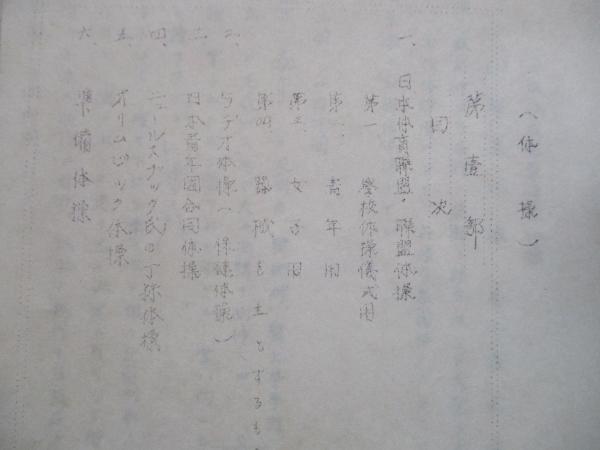 (体操)
第壹部
目次
一、日本体育聯盟・聯盟体操
第一 学校体操儀式用
第二 青年用
第三 女子用
第四 躁械を主とするも
二、ラヂオ体操(保健体操)
三、日本青年団合同体操
四、ニールスブック氏の丁抹体操
五、オリムピック体操
六、準備体操